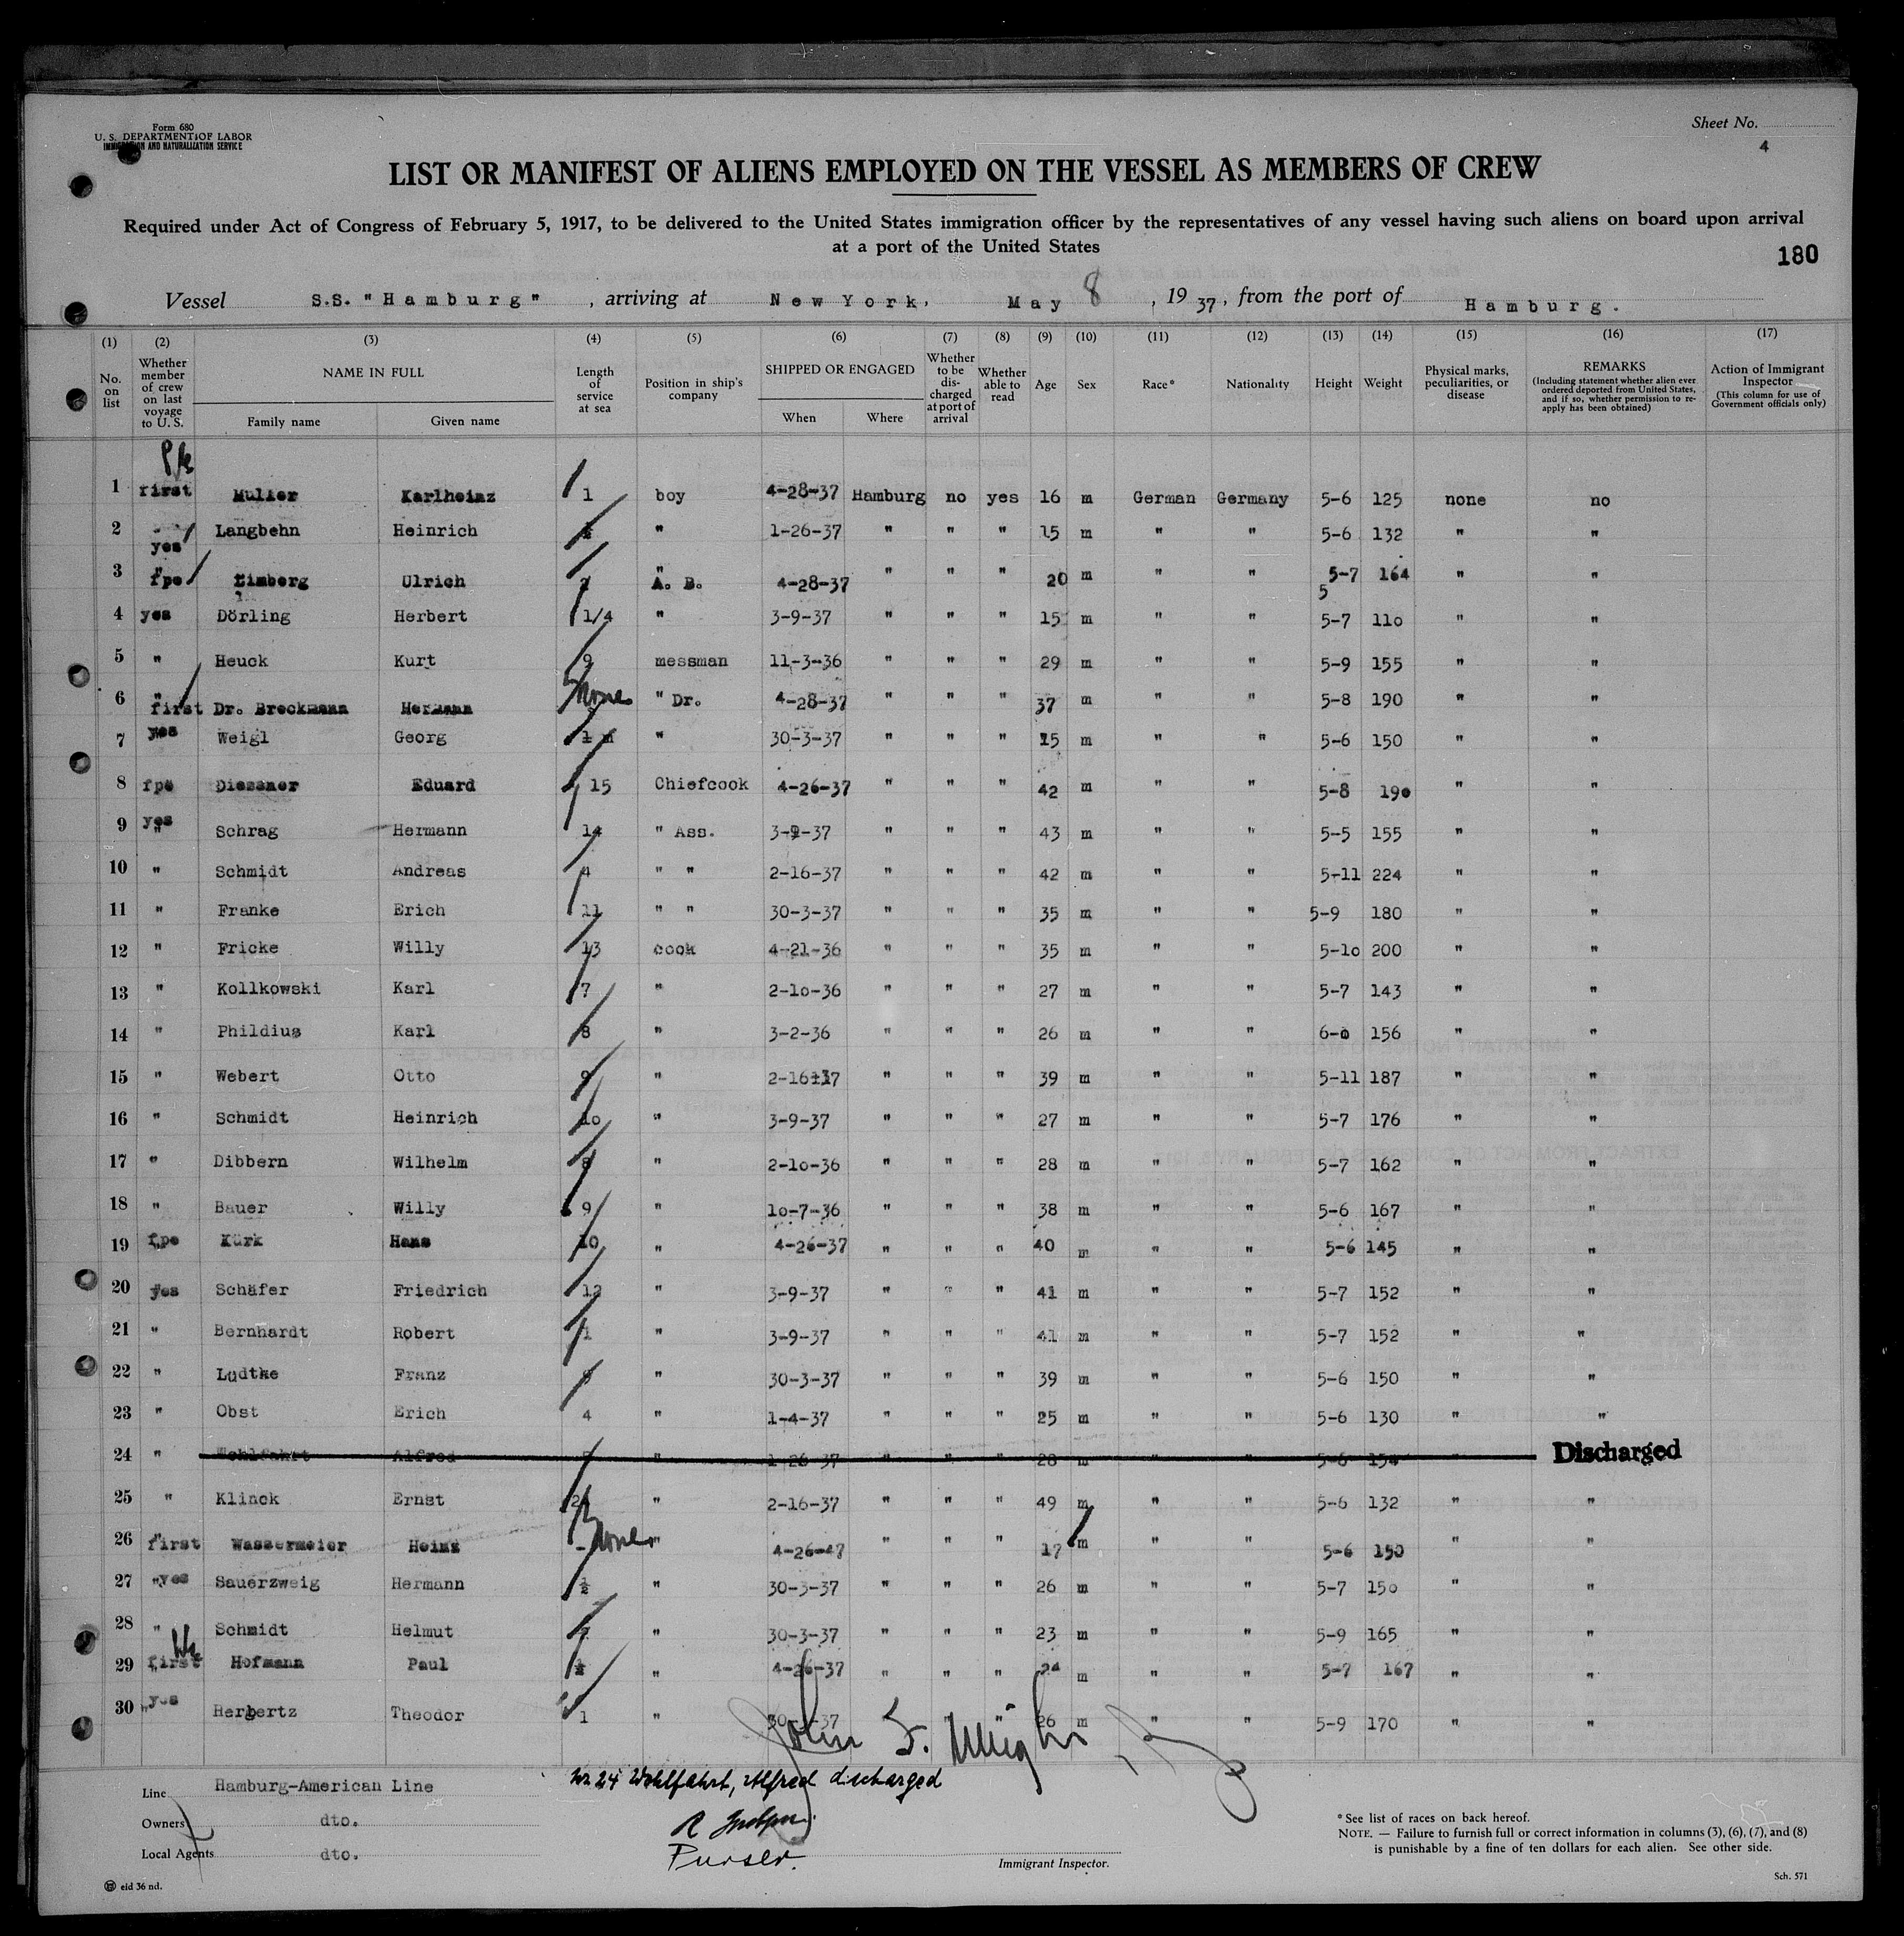 Form 680
U. S. DEPARTMENT OF LABOR
IMMIGRATION AND NATURALIZATION SERVICE
Sheet No.
4
LIST OR MANIFEST OF ALIENS EMPLOYED ON THE VESSEL AS MEMBERS OF CREW
Required under Act of Congress of February 5, 1917, to be delivered to the United States immigration officer by the representatives of any vessel having such aliens on board upon arrival
at a port of the United States
180
Vessel S.S. "Hamburg" , arriving at New York, May 8 , 19 37, from the port of Hamburg.
(1) (2) (3) (4) (5) (6) (7) (8) (9) (10) (11) (12) (13) (14) (15) (16) (17)
No. on list
Whether member of crew on last voyage to U. S.
NAME IN FULL
Family name Given name
Length of service at sea
Position in ship's company
SHIPPED OR ENGAGED
When Where
Whether to be discharged at port of arrival
Whether able to read
Age Sex Race* Nationality Height Weight
Physical marks, peculiarities, or disease
REMARKS
(Including statement whether alien ever ordered deported from United States, and if so, whether permission to reapply has been obtained)
Action of Immigrant Inspector
(This column for use of Government officials only)
1 first Muller Karlheinz 1 boy 4-28-37 Hamburg no yes 16 m German Germany 5-6 125 none no
2 yes Langbehn Heinrich " 1-26-37 " " " 15 m " " 5-6 132 " "
3 fpe Limberg Ulrich A. B. 4-28-37 " " " 20 m " " 5-7 164 " "
4 yes Dörling Herbert 1/4 " 3-9-37 " " " 15 m " " 5-7 110 " "
5 " Heuck Kurt 9 messman 11-3-36 " " " 29 m " " 5-9 155 " "
6 first Dr. Breckmann Hermann None " Dr. 4-28-37 " " " 37 m " " 5-8 190 " "
7 yes Weigl Georg " 30-3-37 " " " 15 m " " 5-6 150 " "
8 fpe Diessner Eduard 15 Chiefcook 4-26-37 " " " 42 m " " 5-8 190 " "
9 yes Schrag Hermann 14 " Ass. 3-9-37 " " " 43 m " " 5-5 155 " "
10 " Schmidt Andreas 4 " " 2-16-37 " " " 42 m " " 5-11 224 " "
11 " Franke Erich 11 " " 30-3-37 " " " 35 m " " 5-9 180 " "
12 " Fricke Willy 13 cook 4-21-36 " " " 35 m " " 5-10 200 " "
13 " Kollkowski Karl 7 " 2-10-36 " " " 27 m " " 5-7 143 " "
14 " Phildius Karl 8 " 3-2-36 " " " 26 m " " 6-0 156 " "
15 " Webert Otto 9 " 2-16-37 " " " 39 m " " 5-11 187 " "
16 " Schmidt Heinrich 10 " 3-9-37 " " " 27 m " " 5-7 176 " "
17 " Dibbern Wilhelm 8 " 2-10-36 " " " 28 m " " 5-7 162 " "
18 " Bauer Willy 9 " 10-7-36 " " " 38 m " " 5-6 167 " "
19 fpe Kürk Hans 10 " 4-26-37 " " " 40 m " " 5-6 145 " "
20 yes Schäfer Friedrich 12 " 3-9-37 " " " 41 m " " 5-7 152 " "
21 " Bernhardt Robert 1 " 3-9-37 " " " 41 m " " 5-7 152 " "
22 " Ludtke Franz 9 " 30-3-37 " " " 39 m " " 5-6 150 " "
23 " Obst Erich 4 " 1-4-37 " " " 25 m " " 5-6 130 " "
24 " Wohlfahrt Alfred " 1-26-37 " " " 28 m " " 5-6 154 " Discharged
25 " Klinck Ernst " 2-16-37 " " " 49 m " " 5-6 132 " "
26 first Wassermeier Heinz None " 4-26-47 " " " 17 m " " 5-6 150 " "
27 " yes Sauerzweig Hermann ½ " 30-3-37 " " " 26 m " " 5-7 150 " "
28 " Schmidt Helmut " 30-3-37 " " " 23 m " " 5-9 165 " "
29 first Hofmann Paul " 4-26-37 " " " 24 m " " 5-7 167 " "
30 yes Herbertz Theodor 1 " 30-3-37 " " 26 m " " 5-9 170 " "
Line Hamburg-American Line
Owners dto.
Local Agents dto.
Nr 24 Wohlfahrt, Alfred discharged
Purser.
Immigrant Inspector.
* See list of races on back hereof.
NOTE. — Failure to furnish full or correct information in columns (3), (6), (7), and (8)
is punishable by a fine of ten dollars for each alien. See other side.
eld 36 nd.
Sch. 571